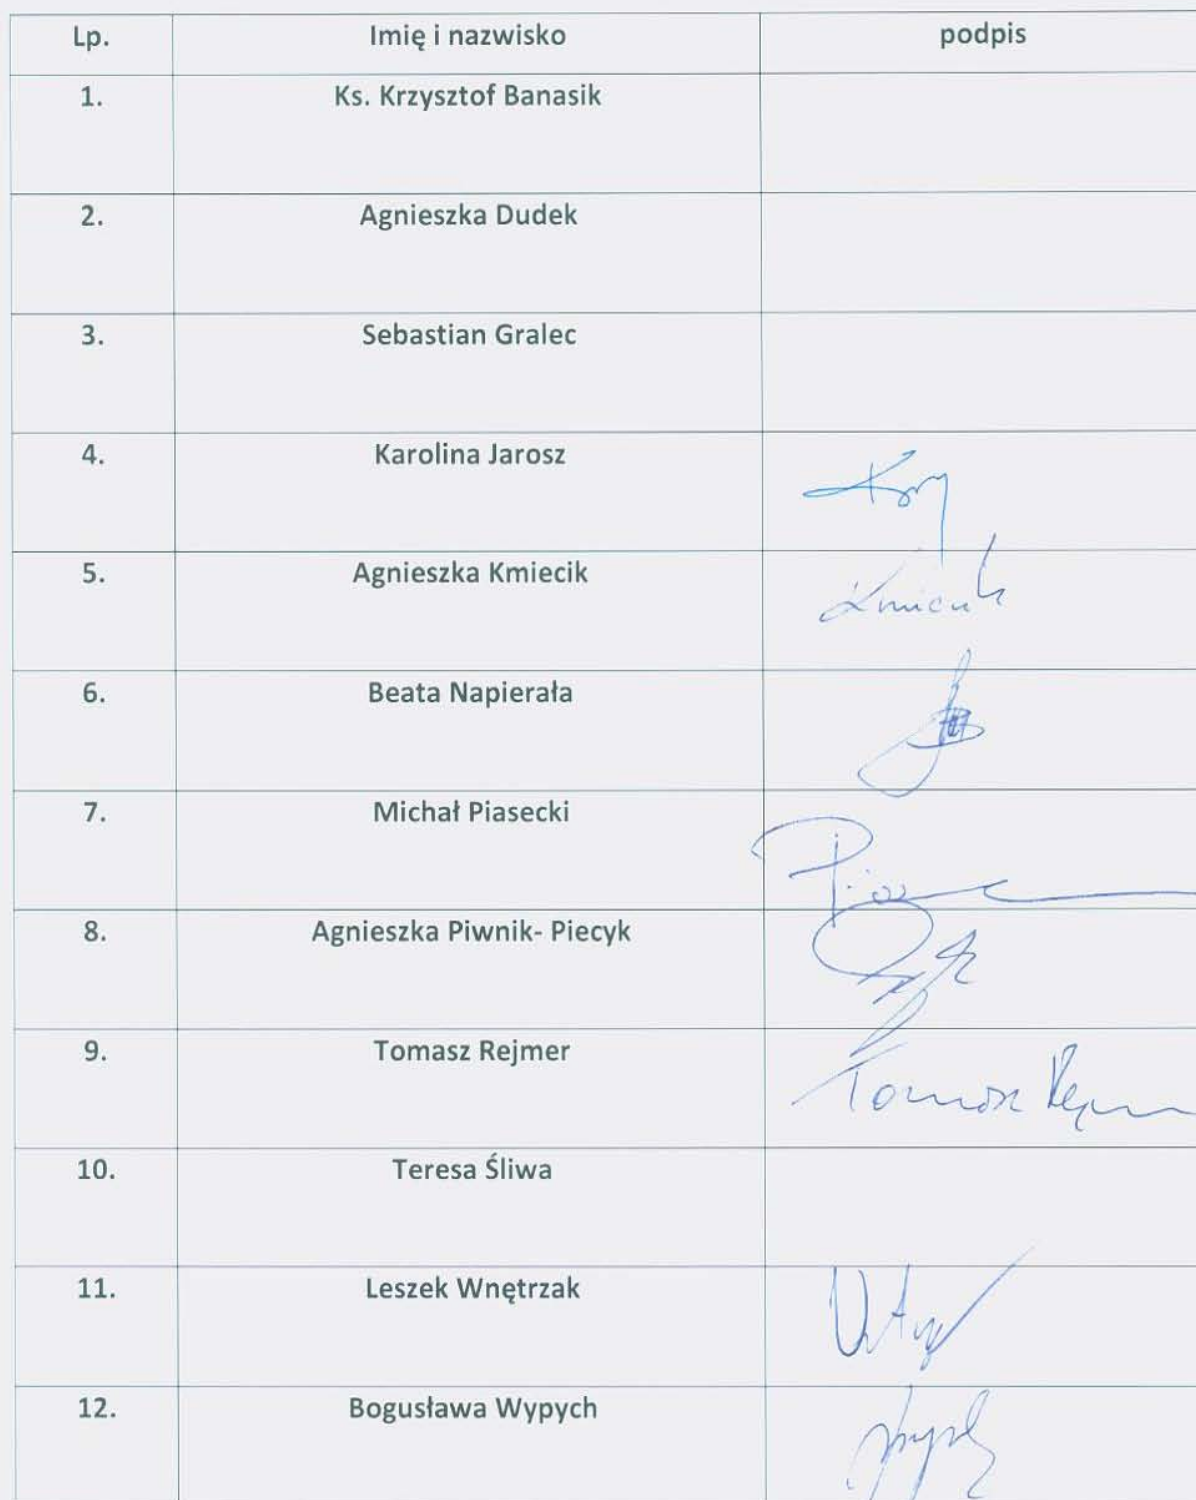 Lp. Imię i nazwisko podpis
1. Ks. Krzysztof Banasik
2. Agnieszka Dudek
3. Sebastian Gralec
4. Karolina Jarosz
5. Agnieszka Kmiecik Kmiecik
6. Beata Napierała
7. Michał Piasecki
8. Agnieszka Piwnik- Piecyk
9. Tomasz Rejmer Tomasz
10. Teresa Śliwa
11. Leszek Wnętrzak
12. Bogusława Wypych